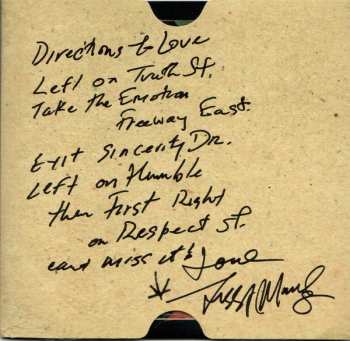 Directions to Love
Left on Truth St.
Take the Emotion
Freeway East.
Exit Sincerity Dr.
Left on Humble
then First Right
on Respect St.
cant miss it
Love